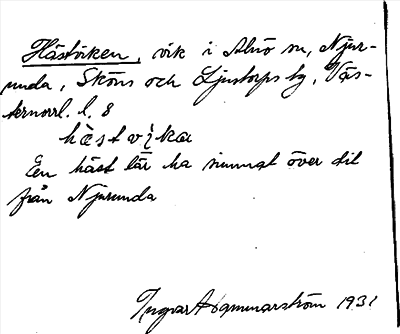 Hästviken, vik i Alnö sn, Njur-
unda, Sköns och Ljustorps tg, Väs-
ternorrl. l. 8
hästvika
En häst lär ha summat över dit
från Njurunda
Ingvar 1931